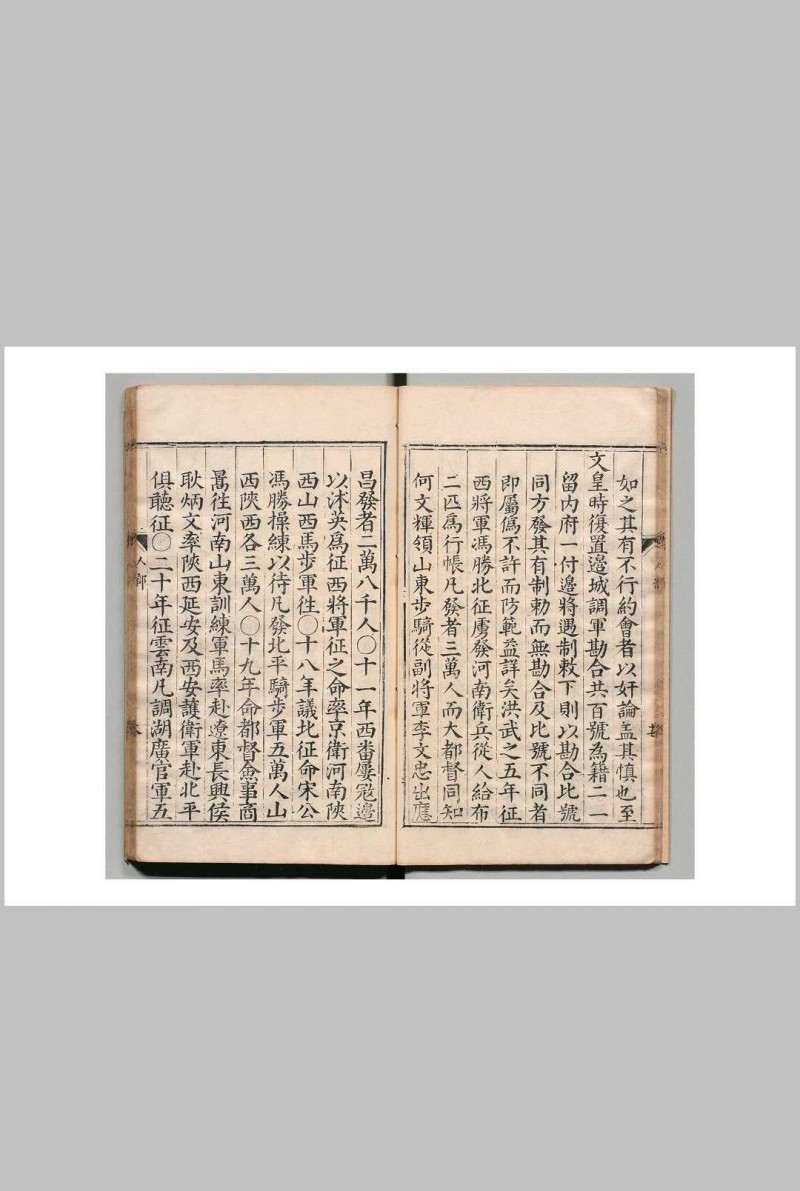 如之其有不行約會者以奸論盖其慎也至
文皇時復置邉城調軍勘合共百號為籍二一
留内府一付邉將遇制敕下則以勘合比號
同方發其有制勅而無勘合及比號不同者
即屬僞不許而防範益詳矣洪武之五年征
西將軍馮勝北征虜發河南衛兵從人給布
二匹爲行帳凡發者三萬人而大都督同知
何文輝領山東步騎從副將軍李文忠出應
昌發者二萬八千人〇十一年西畨屢冦邉
以沭英爲征西將軍征之命率京衛河南陜
西山西馬步軍徃〇十八年議北征命宋公
馮勝操練以待凡發北平騎步軍五萬人山
西陜西各三萬人〇十九年命都督僉事商
暠徃河南山東訓練軍馬率赴遼東長興侯
耿炳文率陜西延安及西安護衛軍赴北平
俱聽征〇二十年征雲南凡調湖廣官軍五